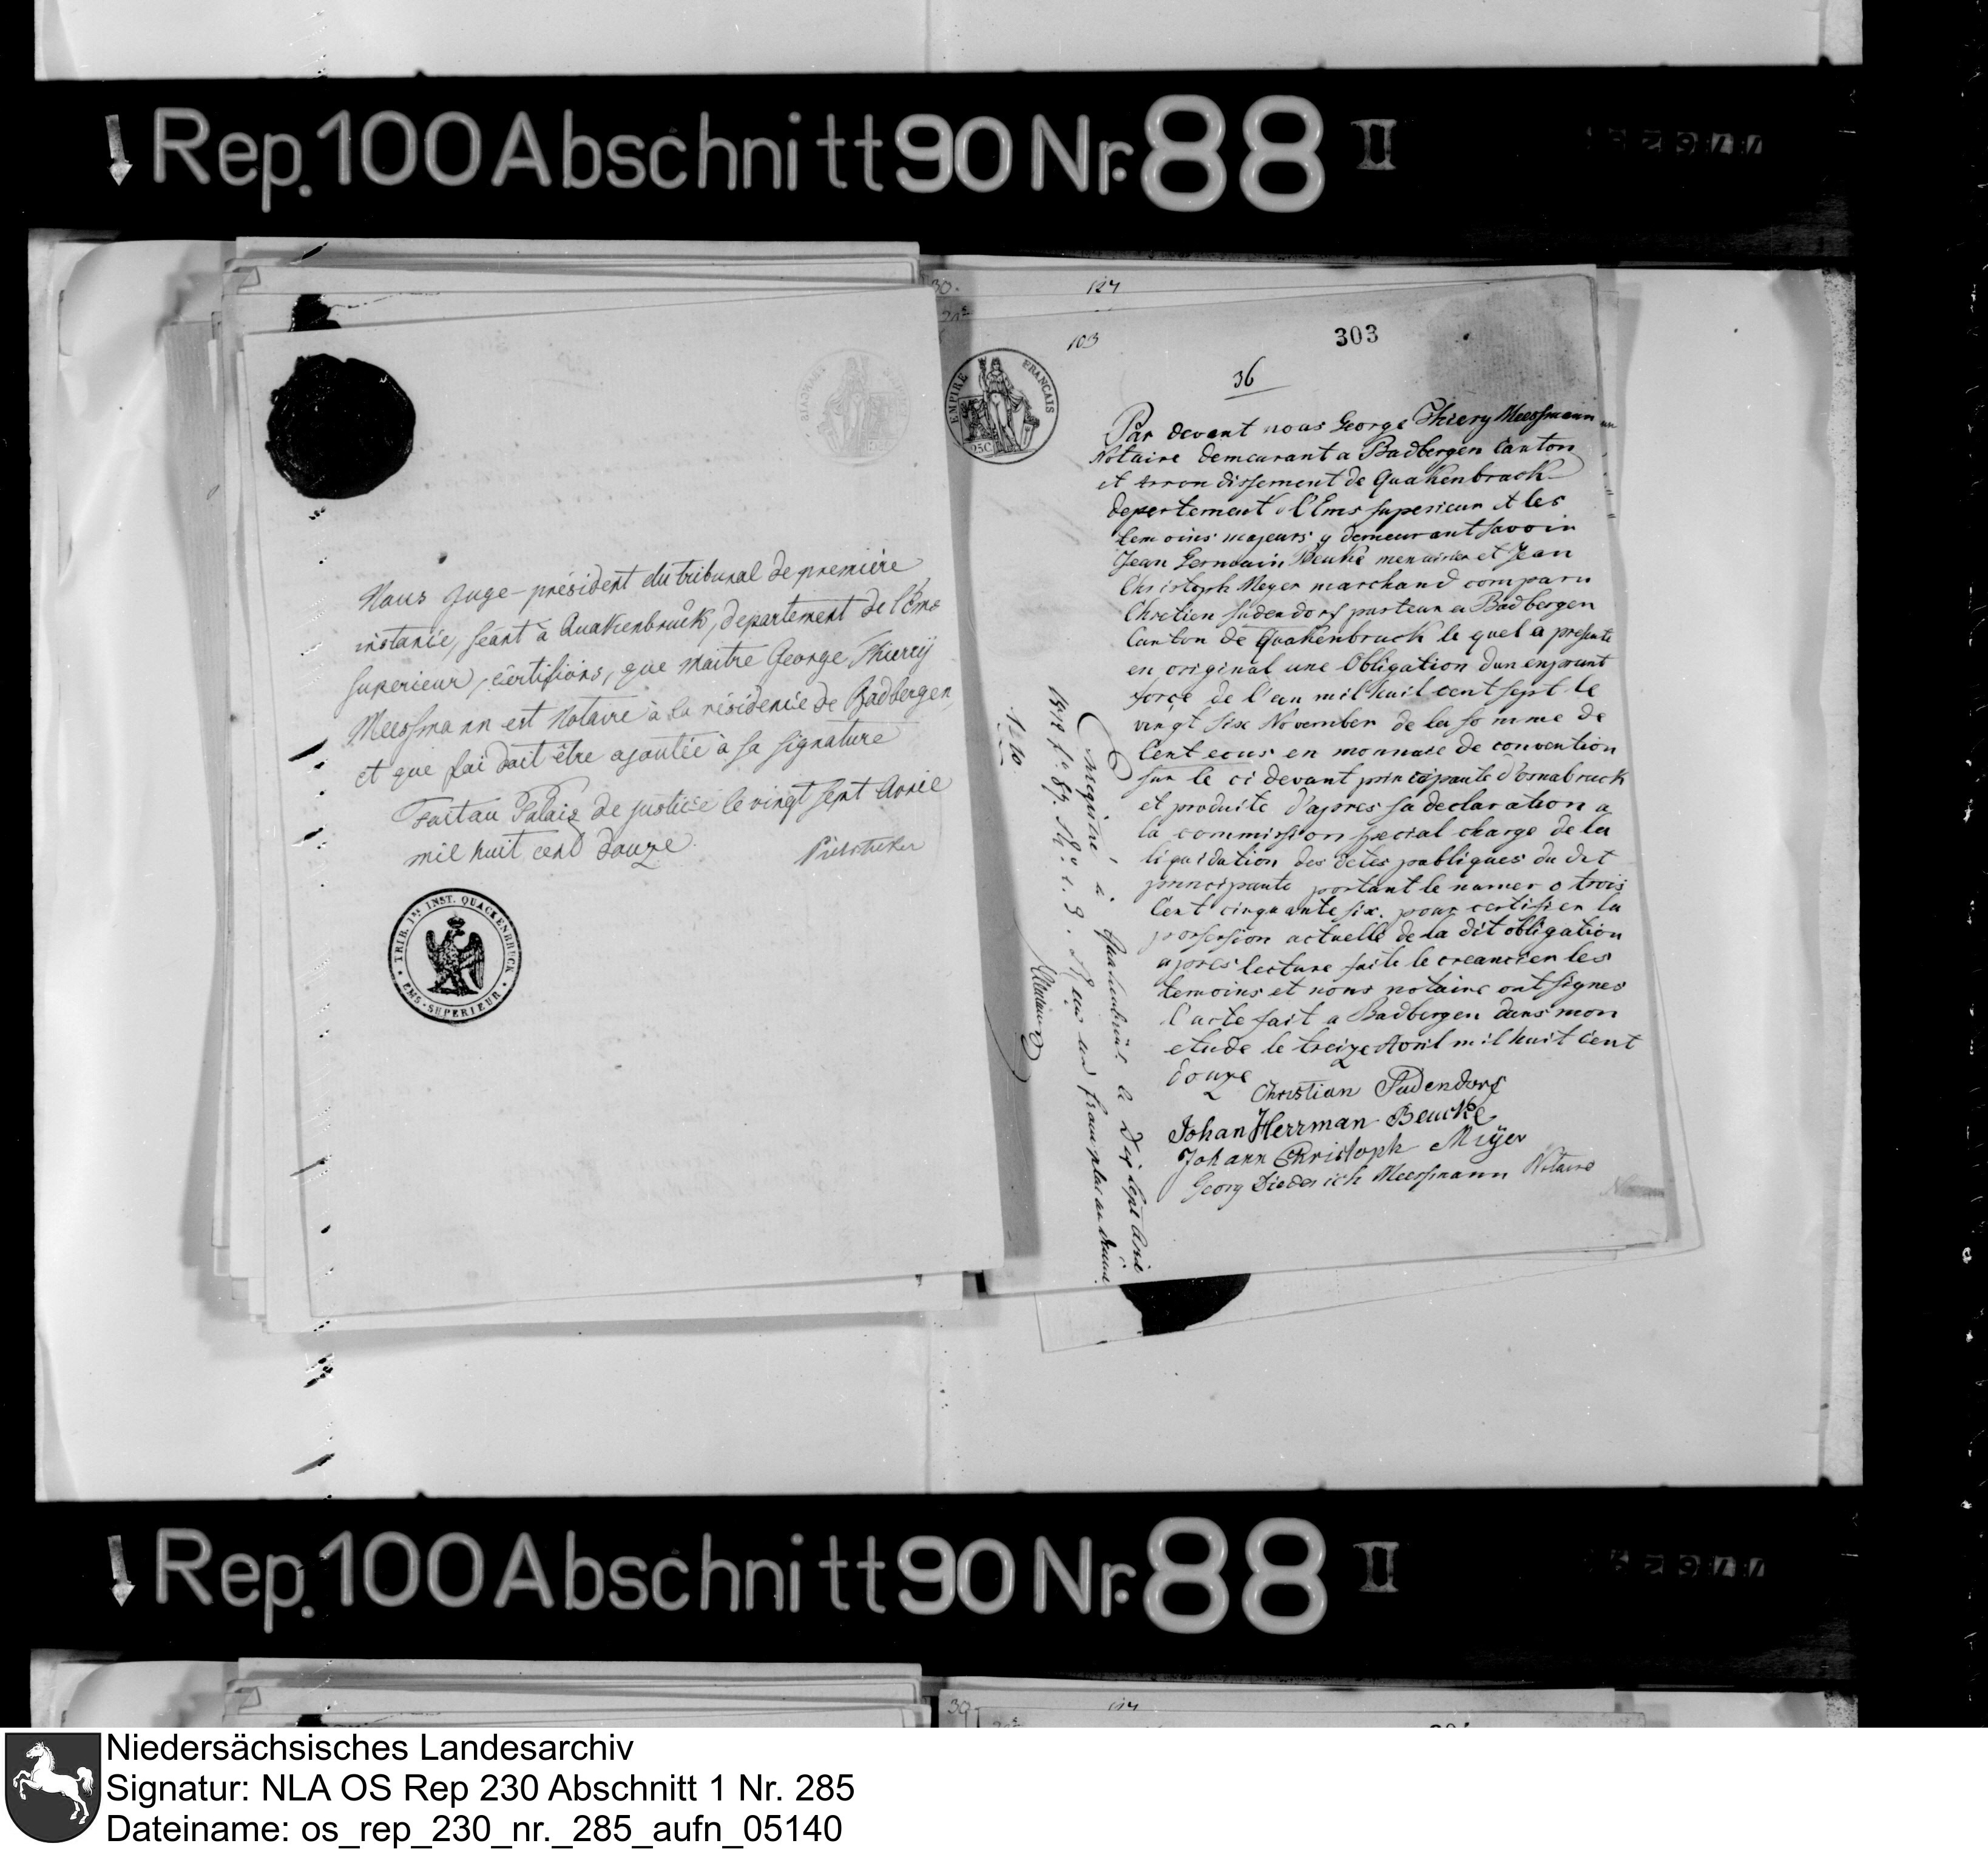 Rep. 100 Abschnitt 90 Nr. 88 II
Nous Juge-président du tribunal de première
instance, séant à Quakenbruck, departement de l'Ems
superieur, certifions, que maitre George Thierry
Meessmann est Notaire à la résidence de Badbergen,
et que foi doit être ajoutée à sa signature
Fait au Palais de justice le vingt sept Avril
mil huit cent douze.
TRIB. 1RE INST. QUACKENBRUCK
EMS-SUPERIEUR
30.
127
103
303
36
EMPIRE FRANÇAIS
25C
Par devant nous George Thiery Meessmann
Notaire demeurant a Badbergen Canton
et arrondissement de Quakenbruck
departement l'Ems superieur et les
temoins majeurs y demeurant savoir
Jean Germain Beuke menuisier et Jean
Christoph Meyer marchand comparu
Chretien Sudendorf pasteur a Badbergen
Canton de Quakenbruck le quel a presente
en original une Obligation dun enprunt
force de l'an mil huit cent sept le
vingt six November de la somme de
Cent ecus en monnaie de convention
sur le ci devant principaute d'osnabruck
et produite d'apres sa declaration a
la commission special charge de la
liquidation des detes publiques du dit
principaute portant le numero trois
Cent cinquante six. pour certifier la
possession actuelle de la dit obligation
apres lecture faite le creancier les
temoins et nous notaire ont signes
l'acte fait a Badbergen dans mon
etude le treize Avril mil huit cent
douze
Christian Sudendorf
Johan Herrman Beucke
Johann Christoph Meÿer
Georg Diederich Meessmann Notaire
Enregistré à Quakenbruck le Dix Sept Avril
1812 f.o 89. R.o
Rep. 100 Abschnitt 90 Nr. 88 II
Niedersächsisches Landesarchiv
Signatur: NLA OS Rep 230 Abschnitt 1 Nr. 285
Dateiname: os_rep_230_nr._285_aufn_05140